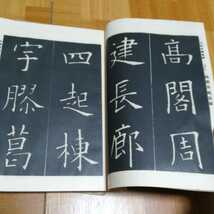 高閣周
建長廊
四起棟
宇膠葛